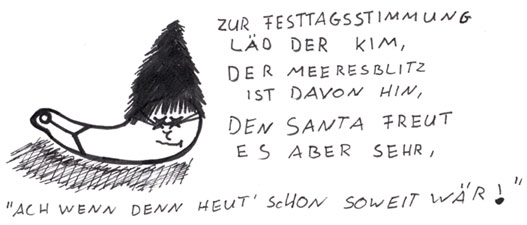 ZUR FESTTAGSSTIMMUNG
LÄD DER KIM,
DER MEERESBLITZ
IST DAVON HIN,
DEN SANTA FREUT
ES ABER SEHR,
"ACH WENN DENN HEUT' SCHON SOWEIT WÄR!"